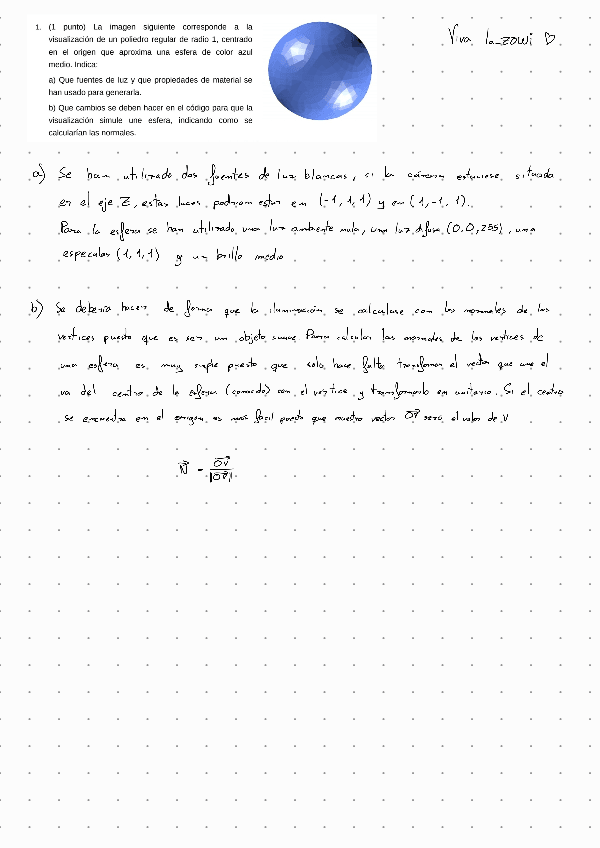 1. (1 punto) La imagen siguiente corresponde a la
visualización de un poliedro regular de radio 1, centrado
en el origen que aproxima una esfera de color azul
medio. Indica:
a) Que fuentes de luz y que propiedades de material se
han usado para generarla.
b) Que cambios se deben hacer en el código para que la
visualización simule une esfera, indicando como se
calcularían las normales.
Viva la zowi ♡
a) Se han utilizado dos fuentes de luz blancas, si la cámara estuviese situada
en el eje Z, estas luces podrían estar en (-1, 1, 1) y en (1, -1, 1).
Para la esfera se han utilizado una luz ambiente nula, una luz difusa (0,0,255), una
especular (1, 1, 1) y un brillo medio
b) Se debería hacer de forma que la iluminación se calculase con las normales de los
vertices puesto que es ser un objeto suave. Para calcular las normales de los vertices de
una esfera es muy simple puesto que solo hace falta transformar el vector que une el
va del centro de la esfera (conocido) con el vertice y transformarlo en unitario. Si el centro
se encuentra en el origen es mas facil puesto que nuestro vector OV será el valor de V
N = OV / |OV|